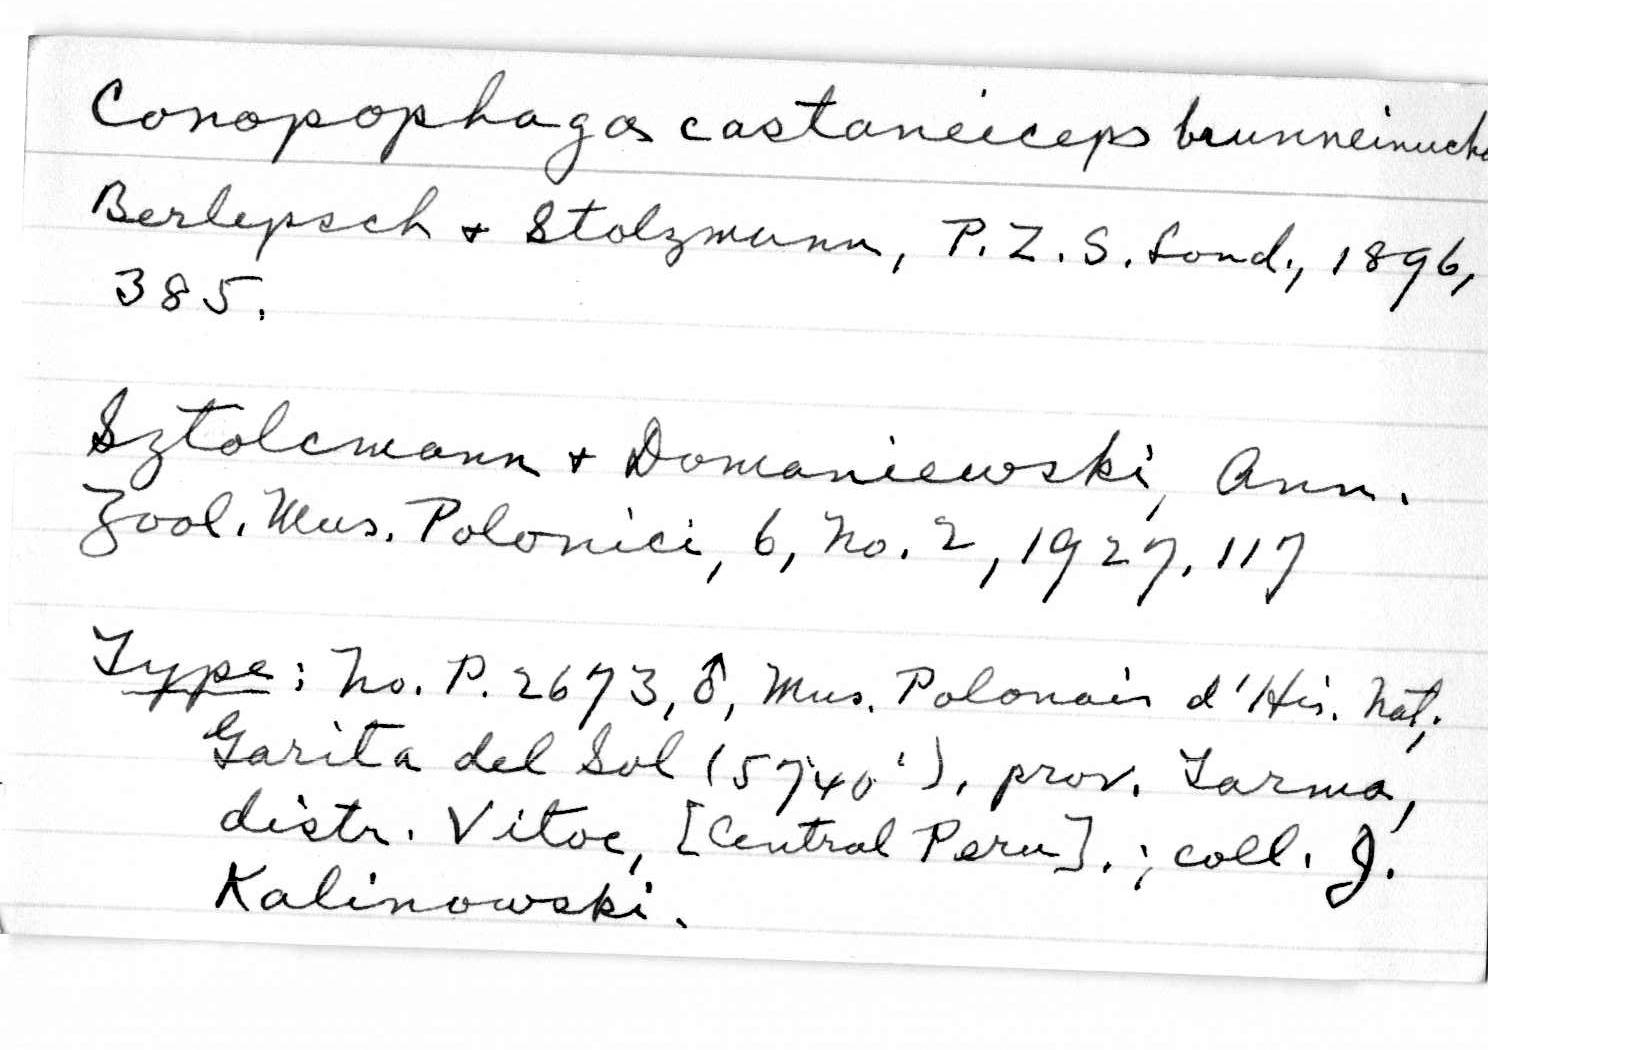 Conopophaga castaneiceps brunneinucha
Berlepsch + Stolzmann, P.Z.S. Lond., 1896,
385.
Sztolcmann + Domaniewski, Ann.
Zool. Mus. Polonici, 6, No. 2, 1927, 117
Type: No. P. 2673, ♂, Mus. Polonais d'His. Nat.,
Garita del Sol (5740'), prov. Tarma,
distr. Vitoc, [Central Peru].; coll. J.
Kalinowski.